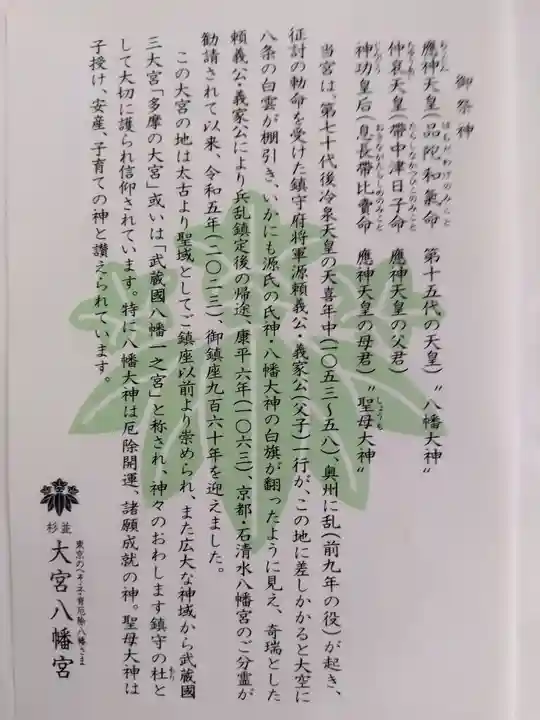 御祭神
應神天皇(品陀和氣命 第十五代の天皇)〝八幡大神〟
仲哀天皇(帶中津日子命 應神天皇の父君)
神功皇后(息長帶比賣命 應神天皇の母君)〝聖母大神〟
当宮は、第七十代後冷泉天皇の天喜年中(一〇五三〜五八)、奥州に乱(前九年の役)が起き、
征討の勅命を受けた鎮守府将軍源頼義公・義家公(父子)一行が、この地に差しかかると大空に
八条の白雲が棚引き、いかにも源氏の氏神・八幡大神の白旗が翻ったように見え、奇瑞とした
頼義公・義家公により兵乱鎮定後の帰途、康平六年(一〇六三)、京都・石清水八幡宮のご分霊が
勧請されて以来、令和五年(二〇二三)、御鎮座九百六十年を迎えました。
この大宮の地は太古より聖域としてご鎮座以前より崇められ、また広大な神域から武蔵國
三大宮「多摩の大宮」或いは「武蔵國八幡一之宮」と称され、神々のおわします鎮守の杜と
して大切に護られ信仰されています。特に八幡大神は厄除開運、諸願成就の神。聖母大神は
子授け、安産、子育ての神と讃えられています。
東京のへそ・子育厄除八幡さま
杉並 大宮八幡宮